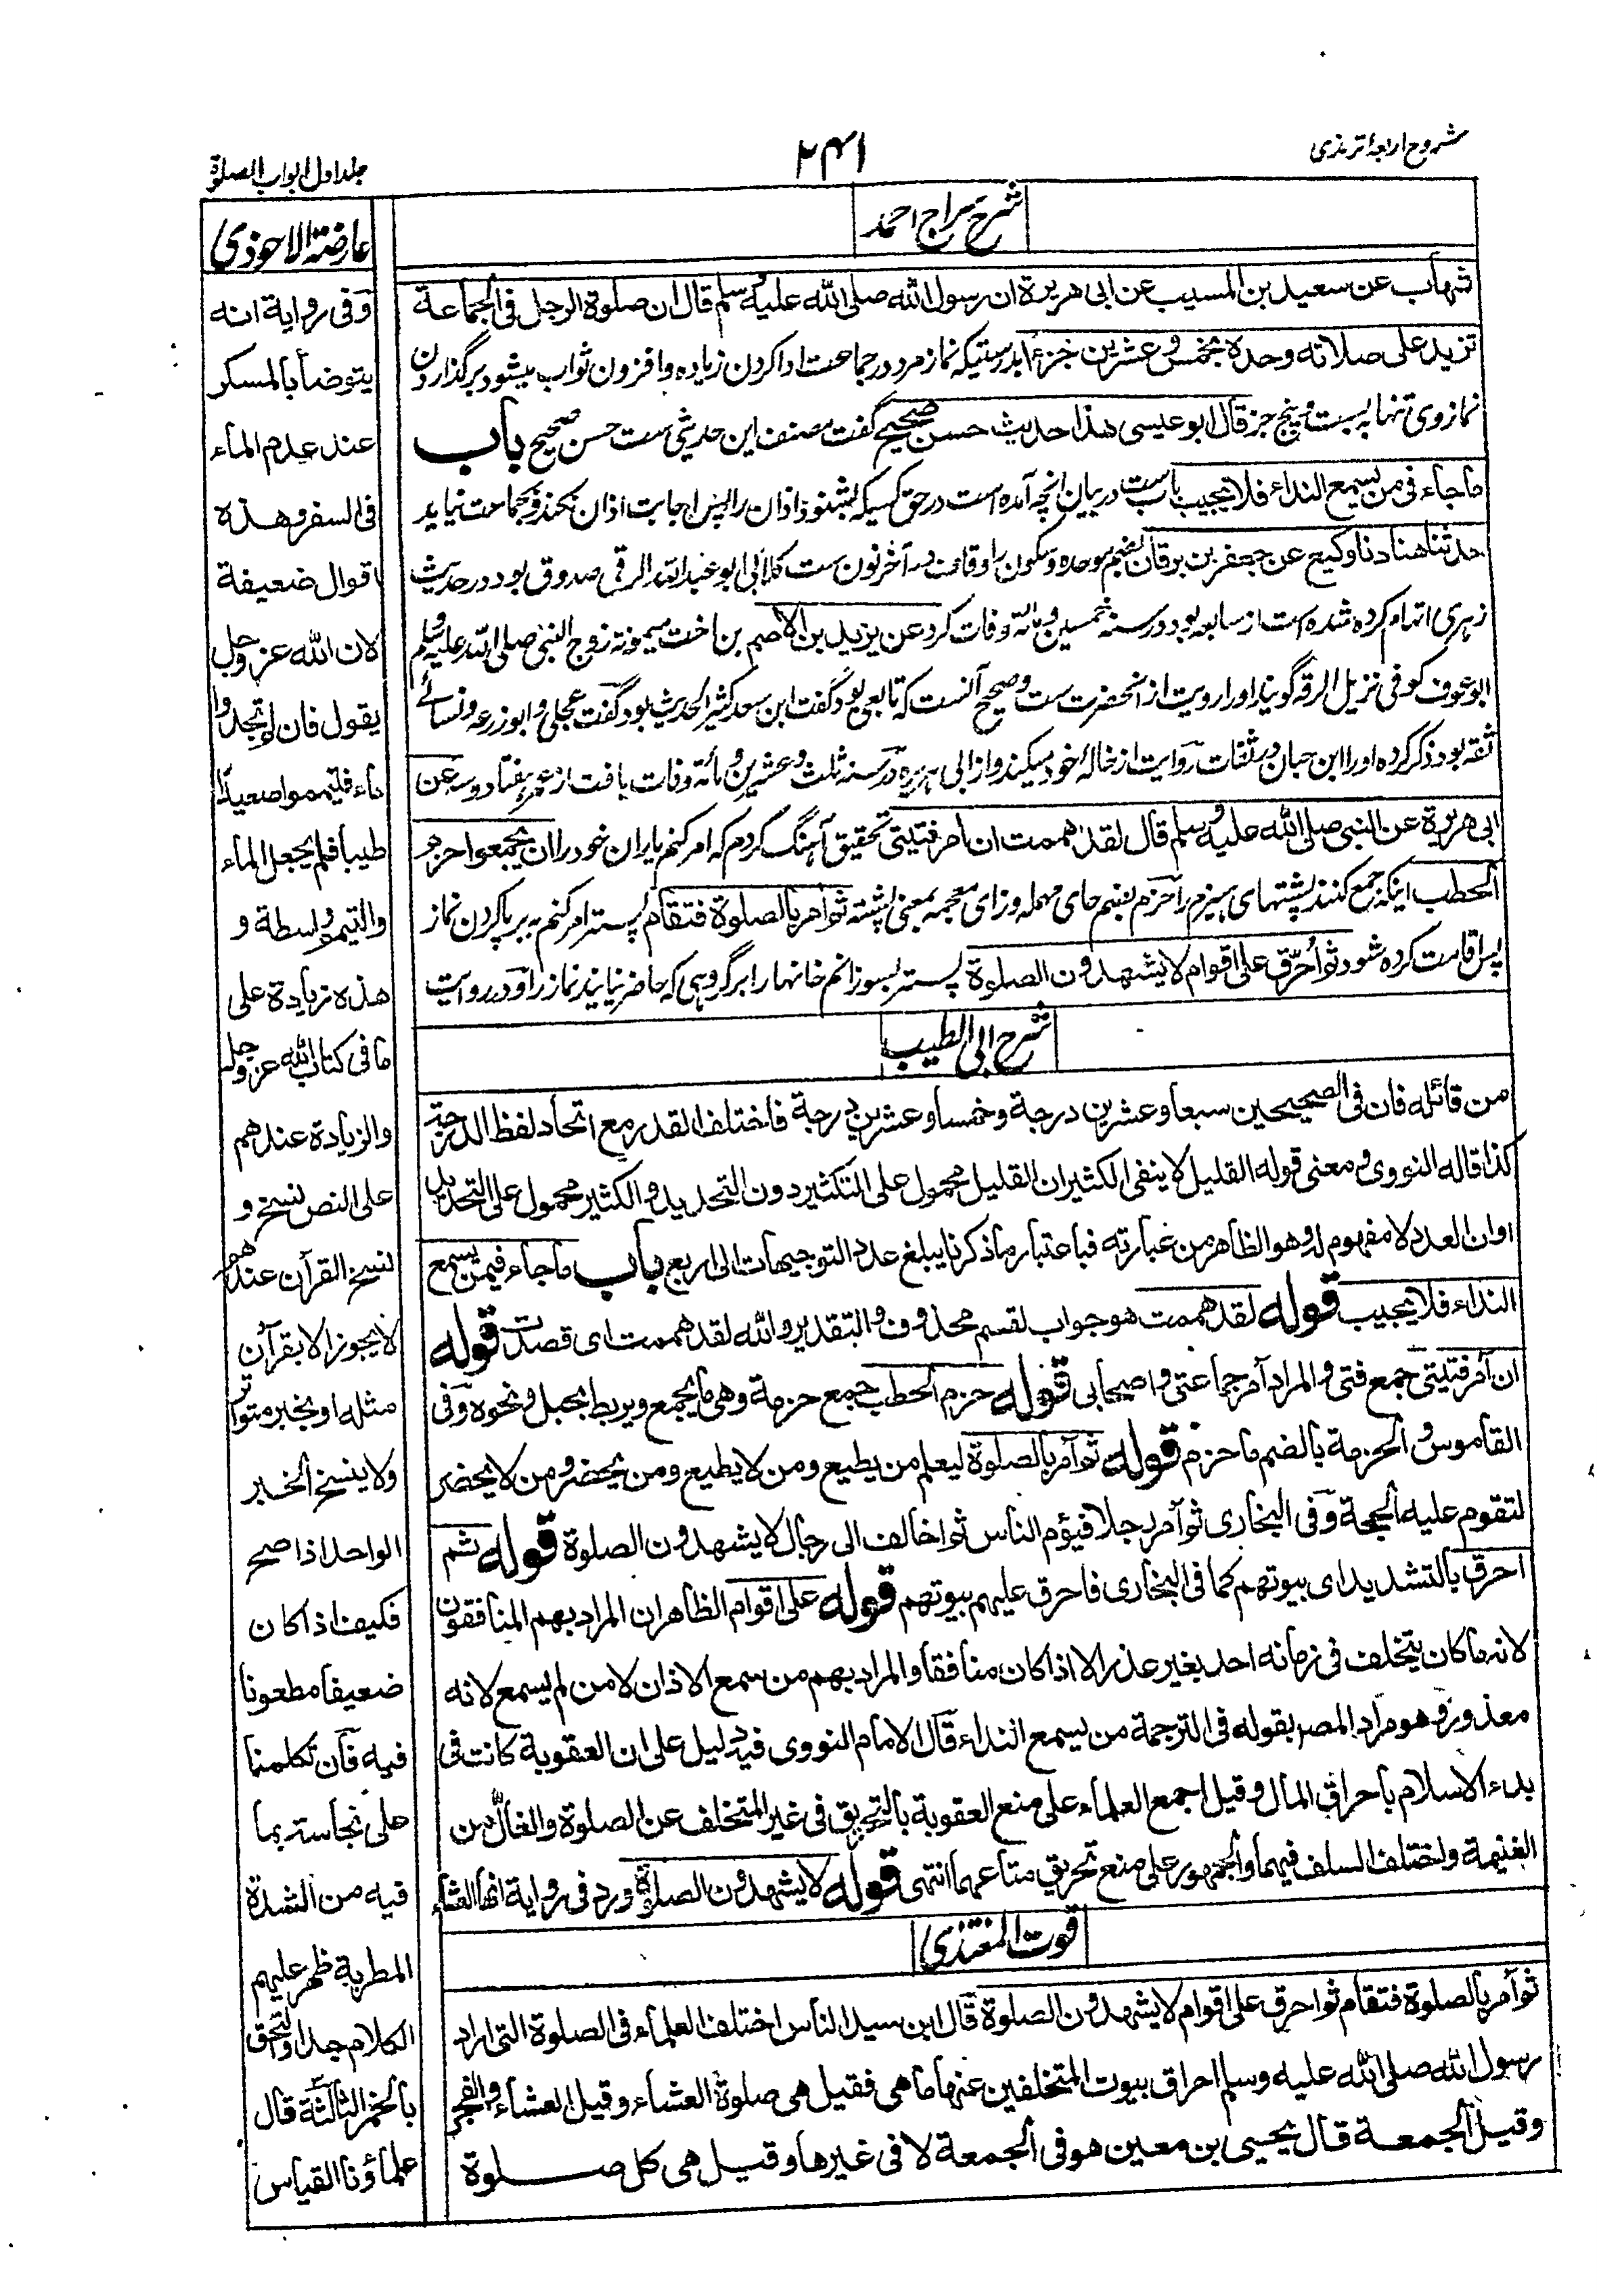 شروح اربعۂ ترمذی
۲۴۱
جلد اول ابواب الصلوة
شرح سراج احمد
شهاب عن سعيد بن المسيب عن ابی هريرة ان رسول الله صلی الله عليه وسلم قال ان صلوة الرجل فی الجماعة
تزيد علی صلاته وحده بخمس وعشرين جزءا بدرستیکه نماز مرد در جماعت ادا کردن زیاده و افزون ثواب میشود بر گذاردن
نماز وی تنها به بست و پنج جز قال ابو عيسی هذا حديث حسن صحيح گفت مصنف این حدیثی ست حسن صحیح باب
ما جاء فی من يسمع النداء فلا يجيب باب ست در بیان آنچه آمده است در حق کسیکه بشنود اذان را پس اجابت اذان نکند و بجماعت نیاید
حدثنا هناد نا وكيع عن جعفر بن برقان بضم موحده و سکون را و قاف در آخر نون ست کلابی ابو عبد الله الرقی صدوق بود در حدیث
زهری اتهام کرده شده است از سابعه بود در سنه خمسین و مائة وفات کرد عن يزيد بن الاصم بن اخت میمونه زوج النبی صلی الله علیه وسلم
ابو عوف کوفی نزیل الرقه گویند او را رویت از آنحضرت ست و صحیح آنست که تابعی بود گفت ابن سعد کثیر الحدیث بود گفت عجلی و ابو زرعه و نسائے
ثقه بود ذکر کرده او را ابن حبان در ثقات روایت از خالهٔ خود میکند و از ابی هریره در سنه ثلث و عشرین و مائة وفات یافت از عمر هفتاد و سه عن
ابی هريرة عن النبی صلی الله عليه وسلم قال لقد هممت ان آمر فتيتی تحقیق آهنگ کردم که امر کنم یاران خود را ان يجمعوا حزم
الحطب اینکه جمع کنند پشتهای هیزم را حزم بضم حای مهمله و زای معجمه بمعنی پشته ثم آمر بالصلوة فتقام پستر امر کنم به برپا کردن نماز
پس اقامت کرده شود ثم احرّق علی اقوام لا يشهدون الصلوة پستر بسوزانم خانها را بر گروهی که حاضر نیایند نماز را و در روایت
شرح ابی الطيب
من قائله فان فی الصحيحين سبعا وعشرين درجة وخمسا وعشرين درجة فاختلف القدر مع اتحاد لفظ الدرجة
كذا قاله النووی ومعنی قوله القليل لا ينفی الكثير ان القليل محمول علی التكثير دون التحديد والكثير محمول علی التحديد
او ان العدد لا مفهوم له وهو الظاهر من عبارته فباعتبار ما ذكرنا يبلغ عدد التوجيهات الی اربع باب ما جاء فيمن يسمع
النداء فلا يجيب قوله لقد هممت هو جواب لقسم محذوف والتقدير والله لقد هممت ای قصدت قوله
ان آمر فتيتی جمع فتی والمراد آمر جماعتی واصحابی قوله حزم الحطب جمع حزمة وهی ما يجمع ويربط بحبل ونحوه وفی
القاموس والحزمة بالضم ما حزم قوله ثم آمر بالصلوة ليعلم من يطيع ومن لا يطيع ومن يحضر ومن لا يحضر
لتقوم عليه الحجة وفی البخاری ثم آمر رجلا فيؤم الناس ثم اخالف الی رجال لا يشهدون الصلوة قوله ثم
احرق بالتشديد ای بيوتهم كما فی البخاری فاحرق عليهم بيوتهم قوله علی اقوام الظاهر ان المراد بهم المنافقون
لانه ما كان يتخلف فی زمانه احد بغير عذر الا اذا كان منافقا والمراد بهم من سمع الاذان لا من لم يسمع لانه
معذور وهو مراد المصر بقوله فی الترجمة من يسمع النداء قال الامام النووی فيه دليل علی ان العقوبة كانت فی
بدء الاسلام باحراق المال وقيل اجمع العلماء علی منع العقوبة بالتحريق فی غير المتخلف عن الصلوة والغالّ من
الغنيمة واختلف السلف فيهما والجمهور علی منع تحريق متاعهما انتهی قوله لا يشهدون الصلوة ورد فی رواية انها العشاء
قوت المغتذی
ثم آمر بالصلوة فتقام ثم احرق علی اقوام لا يشهدون الصلوة قال ابن سيد الناس اختلف العلماء فی الصلوة التی اراد
رسول الله صلی الله عليه وسلم احراق بيوت المتخلفين عنها ما هی فقيل هی صلوة العشاء وقيل العشاء والفجر
وقيل الجمعة قال يحيی بن معين هو فی الجمعة لا فی غيرها وقيل هی كل صلوة
عارضة الاحوذی
وفی رواية انه
يتوضأ بالمسكر
عند عدم الماء
فی السفر وهذه
اقوال ضعيفة
لان الله عز وجل
يقول فان لم تجدوا
ماء فتيمموا صعيدا
طيبا فلم يجعل الماء
والتيمم واسطة و
هذه زيادة علی
ما فی كتاب الله عز وجل
والزيادة عندهم
علی النص نسخ و
نسخ القرآن عندهم
لا يجوز الا بقرآن
مثله او بخبر متواتر
ولا ينسخ الخبر
الواحد اذا صح
فكيف اذا كان
ضعيفا مطعونا
فيه فان تكلمنا
علی نجاسته بما
فيه من الشدة
المطربة ظهر عليهم
الكلام جدا والتحق
بالخمر الثالثة قال
علماؤنا القياس